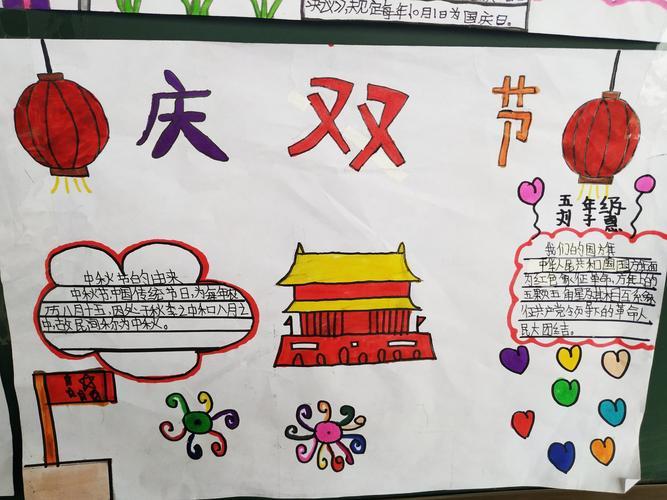 决议》,规定每年10月1日为国庆日。
庆 双 节
五年级
中秋节的由来
中秋节中国传统节日,为每年农
历八月十五,因处于秋季之中和八月之
中,故民间称为中秋。
我们的国旗
中华人民共和国国旗旗面
为红色,象征革命,旗上的
五颗五角星及其相互
征共产党领导下的革命人
民大团结。